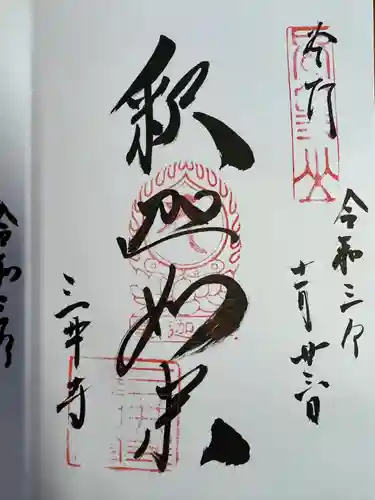 奉拝
令和三年
十一月廿三日
釈迦如来
三井寺
令和三年